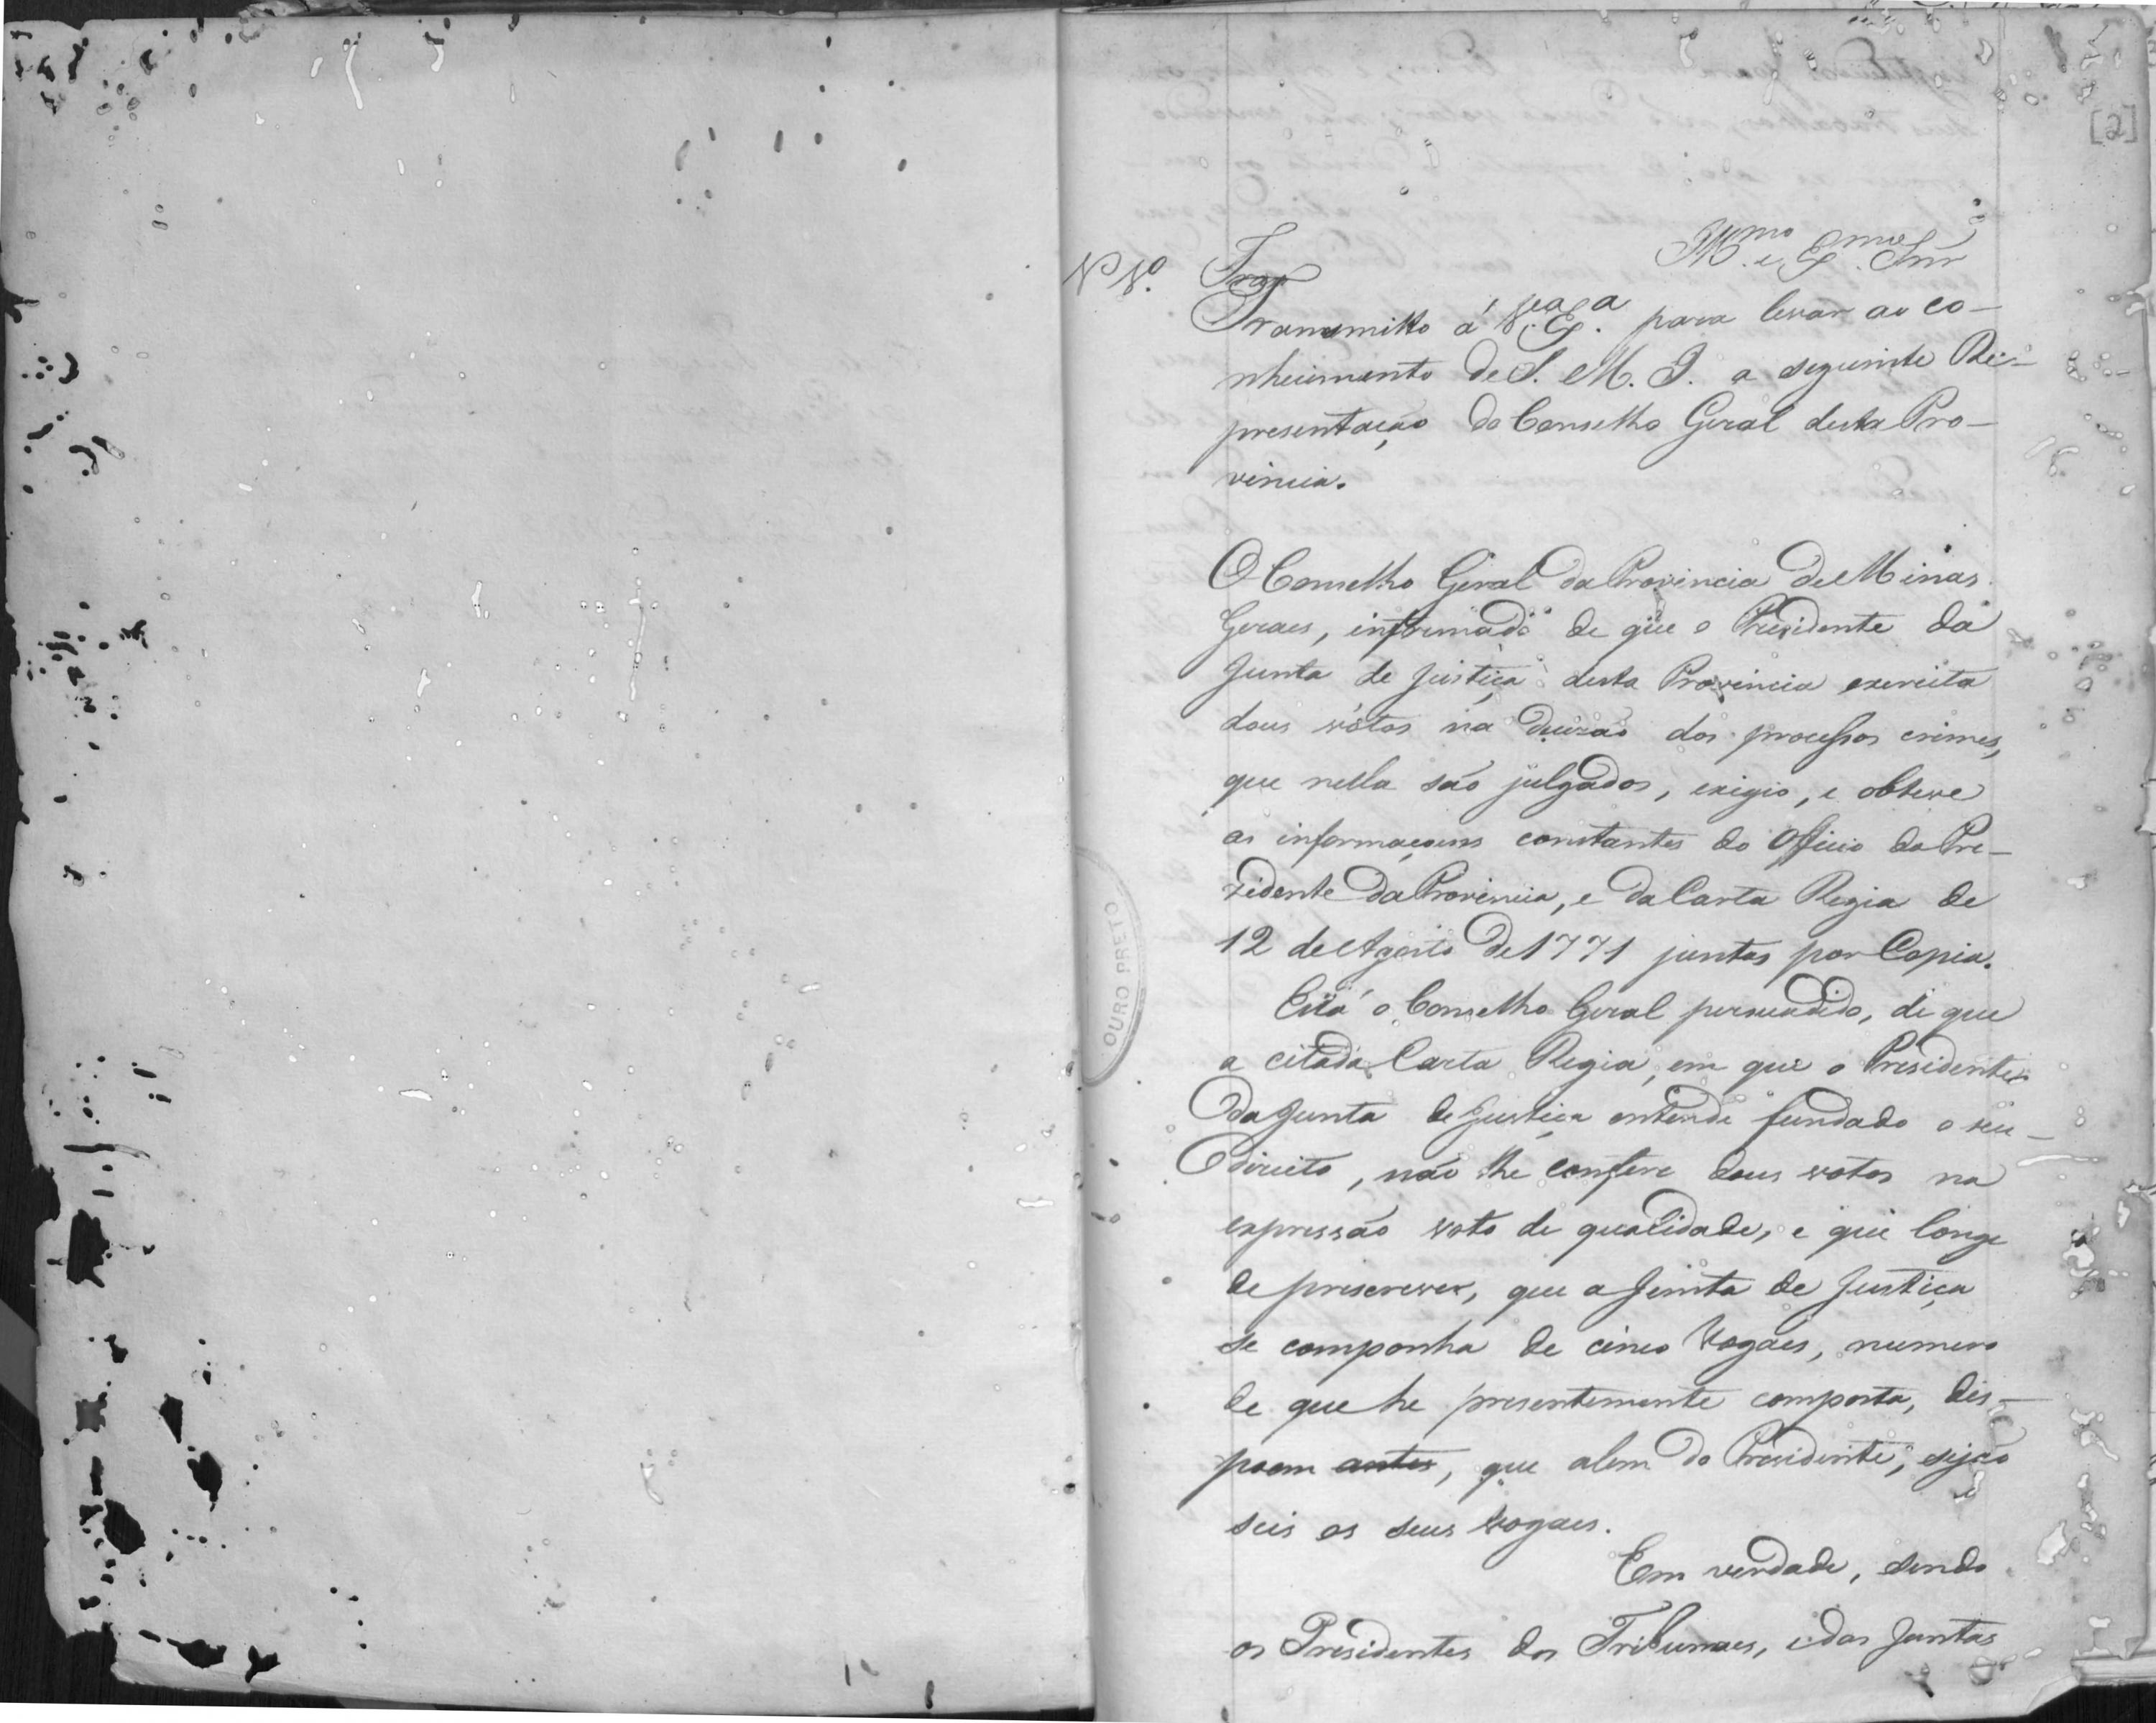 [2]
Illmo. e Exmo. Snr
N No. Tran
Transmitto á V.Exa. para levar ao co-
nhecimento de S. M. I. a seguinte Re-
presentação do Conselho Geral desta Pro-
vincia.
O Conselho Geral da Provincia de Minas
Geraes, informado de que o Presidente da
Junta de Justiça desta Provincia exercita
dous vótos na decizão dos processos crimes,
que nella são julgados, exigio, e obteve
as informaçoens constantes do Officio do Pre-
zidente da Provincia, e da Carta Regia de
12 de Agosto de 1771 juntas por Copia.
Está o Conselho Geral persuadido, de que
a citada Carta Regia, em que o Presidente
da Junta de Justiça entende fundado o seu
direito, não lhe confere dous votos na
expressão voto de qualidade, e que longe
de prescrever, que a Junta de Justiça
se componha de cinco Vogaes, numero
de que he presentemente composta, dis-
poem antes, que alem do Presidente, sejão
seis os seus Vogaes.
Em verdade, sendo
os Presidentes dos Tribunaes, e das Juntas
OURO PRETO